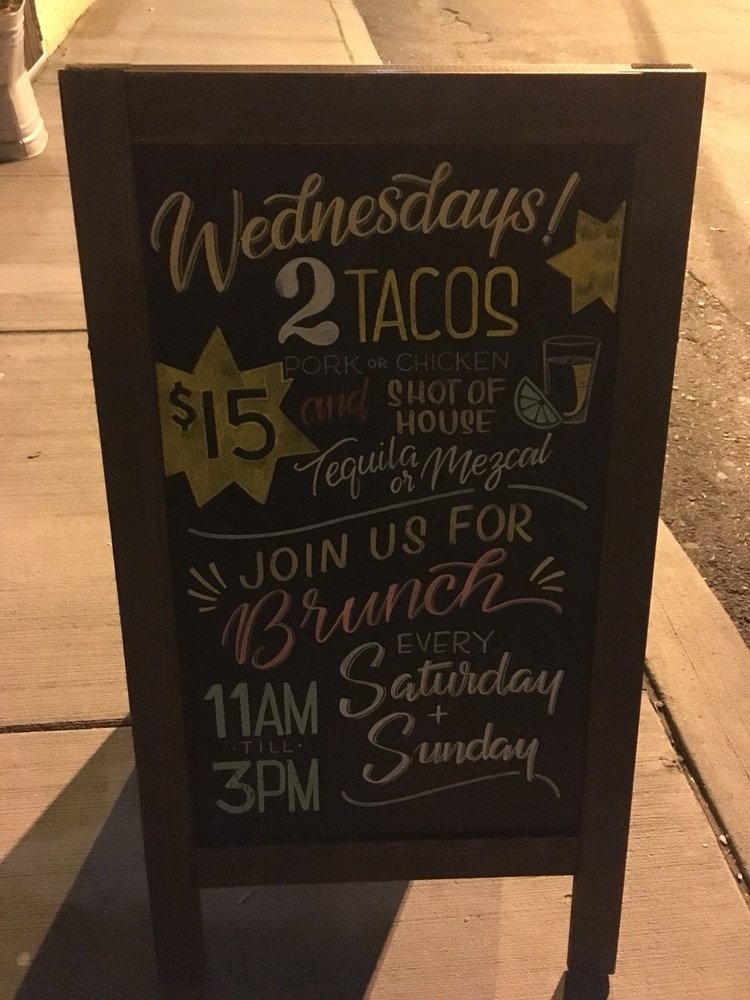 Wednesdays!
2 TACOS
PORK OR CHICKEN
$15 and SHOT OF
HOUSE
Tequila
or Mezcal
JOIN US FOR
Brunch
EVERY
Saturday
+
Sunday
11AM
·TILL·
3PM